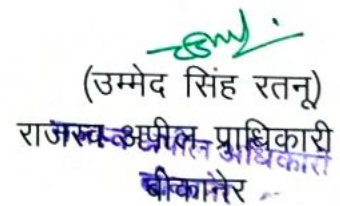 (उम्मेद सिंह रतनू)
राजस्व अपील प्राधिकारी
बीकानेर